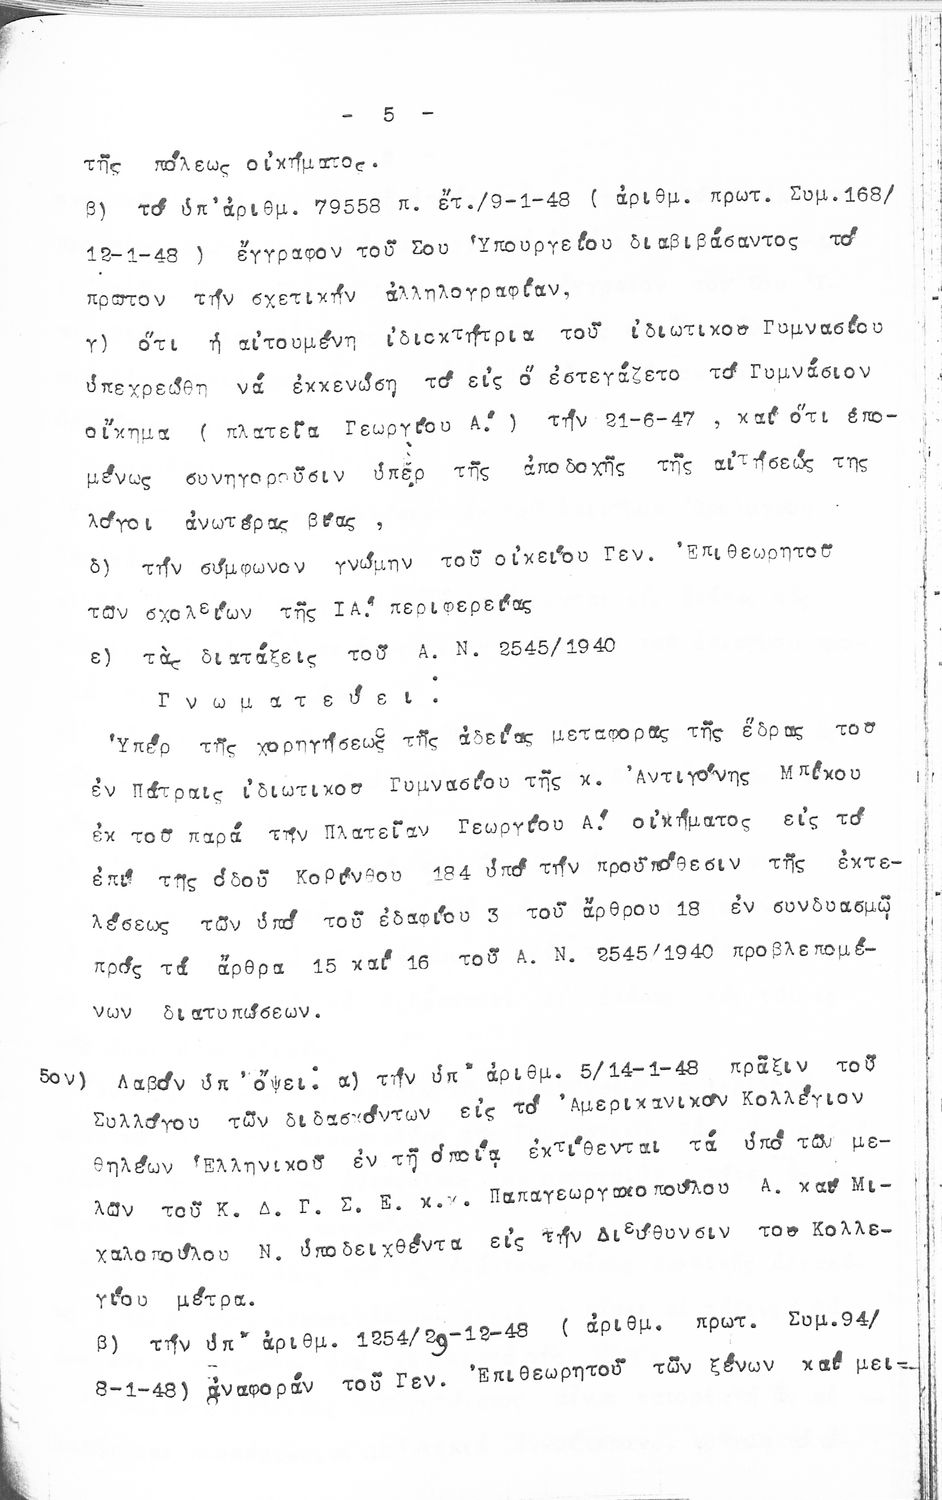 - 5 -
τῆς πόλεως οἰκήματος.
β) τό ὑπ'ἀριθμ. 79558 π. ἔτ./9-1-48 ( ἀριθμ. πρωτ. Συμ.168/
12-1-48 ) ἔγγραφον τοῦ Σου Ὑπουργείου διαβιβάσαντος τό
πρῶτον τήν σχετικήν ἀλληλογραφίαν,
γ) ὅτι ἡ αἰτουμένη ἰδιοκτήτρια τοῦ ἰδιωτικοῦ Γυμνασίου
ὑπεχρεώθη νά ἐκκενώση τό εἰς ὅ ἐστεγάζετο τό Γυμνάσιον
οἴκημα ( πλατεῖα Γεωργίου Α.' ) τήν 21-6-47 , καί ὅτι ἐπο-
μένως συνηγοροῦσιν ὑπέρ τῆς ἀποδοχῆς τῆς αἰτήσεώς της
λόγοι ἀνωτέρας βίας ,
δ) τήν σύμφωνον γνώμην τοῦ οἰκείου Γεν. Ἐπιθεωρητοῦ
τῶν σχολείων τῆς ΙΑ.' περιφερείας
ε) τὰς διατάξεις τοῦ Α. Ν. 2545/1940
Γ ν ω μ α τ ε ύ ε ι :
Ὑπέρ τῆς χορηγήσεως τῆς ἀδείας μεταφορᾶς τῆς ἕδρας τοῦ
ἐν Πάτραις ἰδιωτικοῦ Γυμνασίου τῆς κ. Ἀντιγόνης Μπίκου
ἐκ τοῦ παρά τήν Πλατεῖαν Γεωργίου Α.' οἰκήματος εἰς τό
ἐπί της ὁδοῦ Κορίνθου 184 ὑπό τήν προϋπόθεσιν τῆς ἐκτε-
λέσεως τῶν ὑπό τοῦ ἐδαφίου 3 τοῦ ἄρθρου 18 ἐν συνδυασμῷ
πρός τά ἄρθρα 15 καί 16 τοῦ Α. Ν. 2545/1940 προβλεπομέ-
νων διατυπώσεων.
5ον) Λαβόν ὑπ'ὄψει: α) τήν ὑπ' ἀριθμ. 5/14-1-48 πρᾶξιν τοῦ
Συλλόγου τῶν διδασκόντων εἰς τό Ἀμερικανικόν Κολλέγιον
θηλέων Ἑλληνικοῦ ἐν τῇ ὁποίᾳ ἐκτίθενται τά ὑπό τῶν με-
λῶν τοῦ Κ. Δ. Γ. Σ. Ε. κ.κ. Παπαγεωργακοπούλου Α. καί Μι-
χαλοπούλου Ν. ὑποδειχθέντα εἰς τήν Διεύθυνσιν τοῦ Κολλε-
γίου μέτρα.
β) τήν ὑπ' ἀριθμ. 1254/29-12-48 ( ἀριθμ. πρωτ. Συμ.94/
8-1-48) ἀναφοράν τοῦ Γεν. Ἐπιθεωρητοῦ τῶν ξένων καί μει-